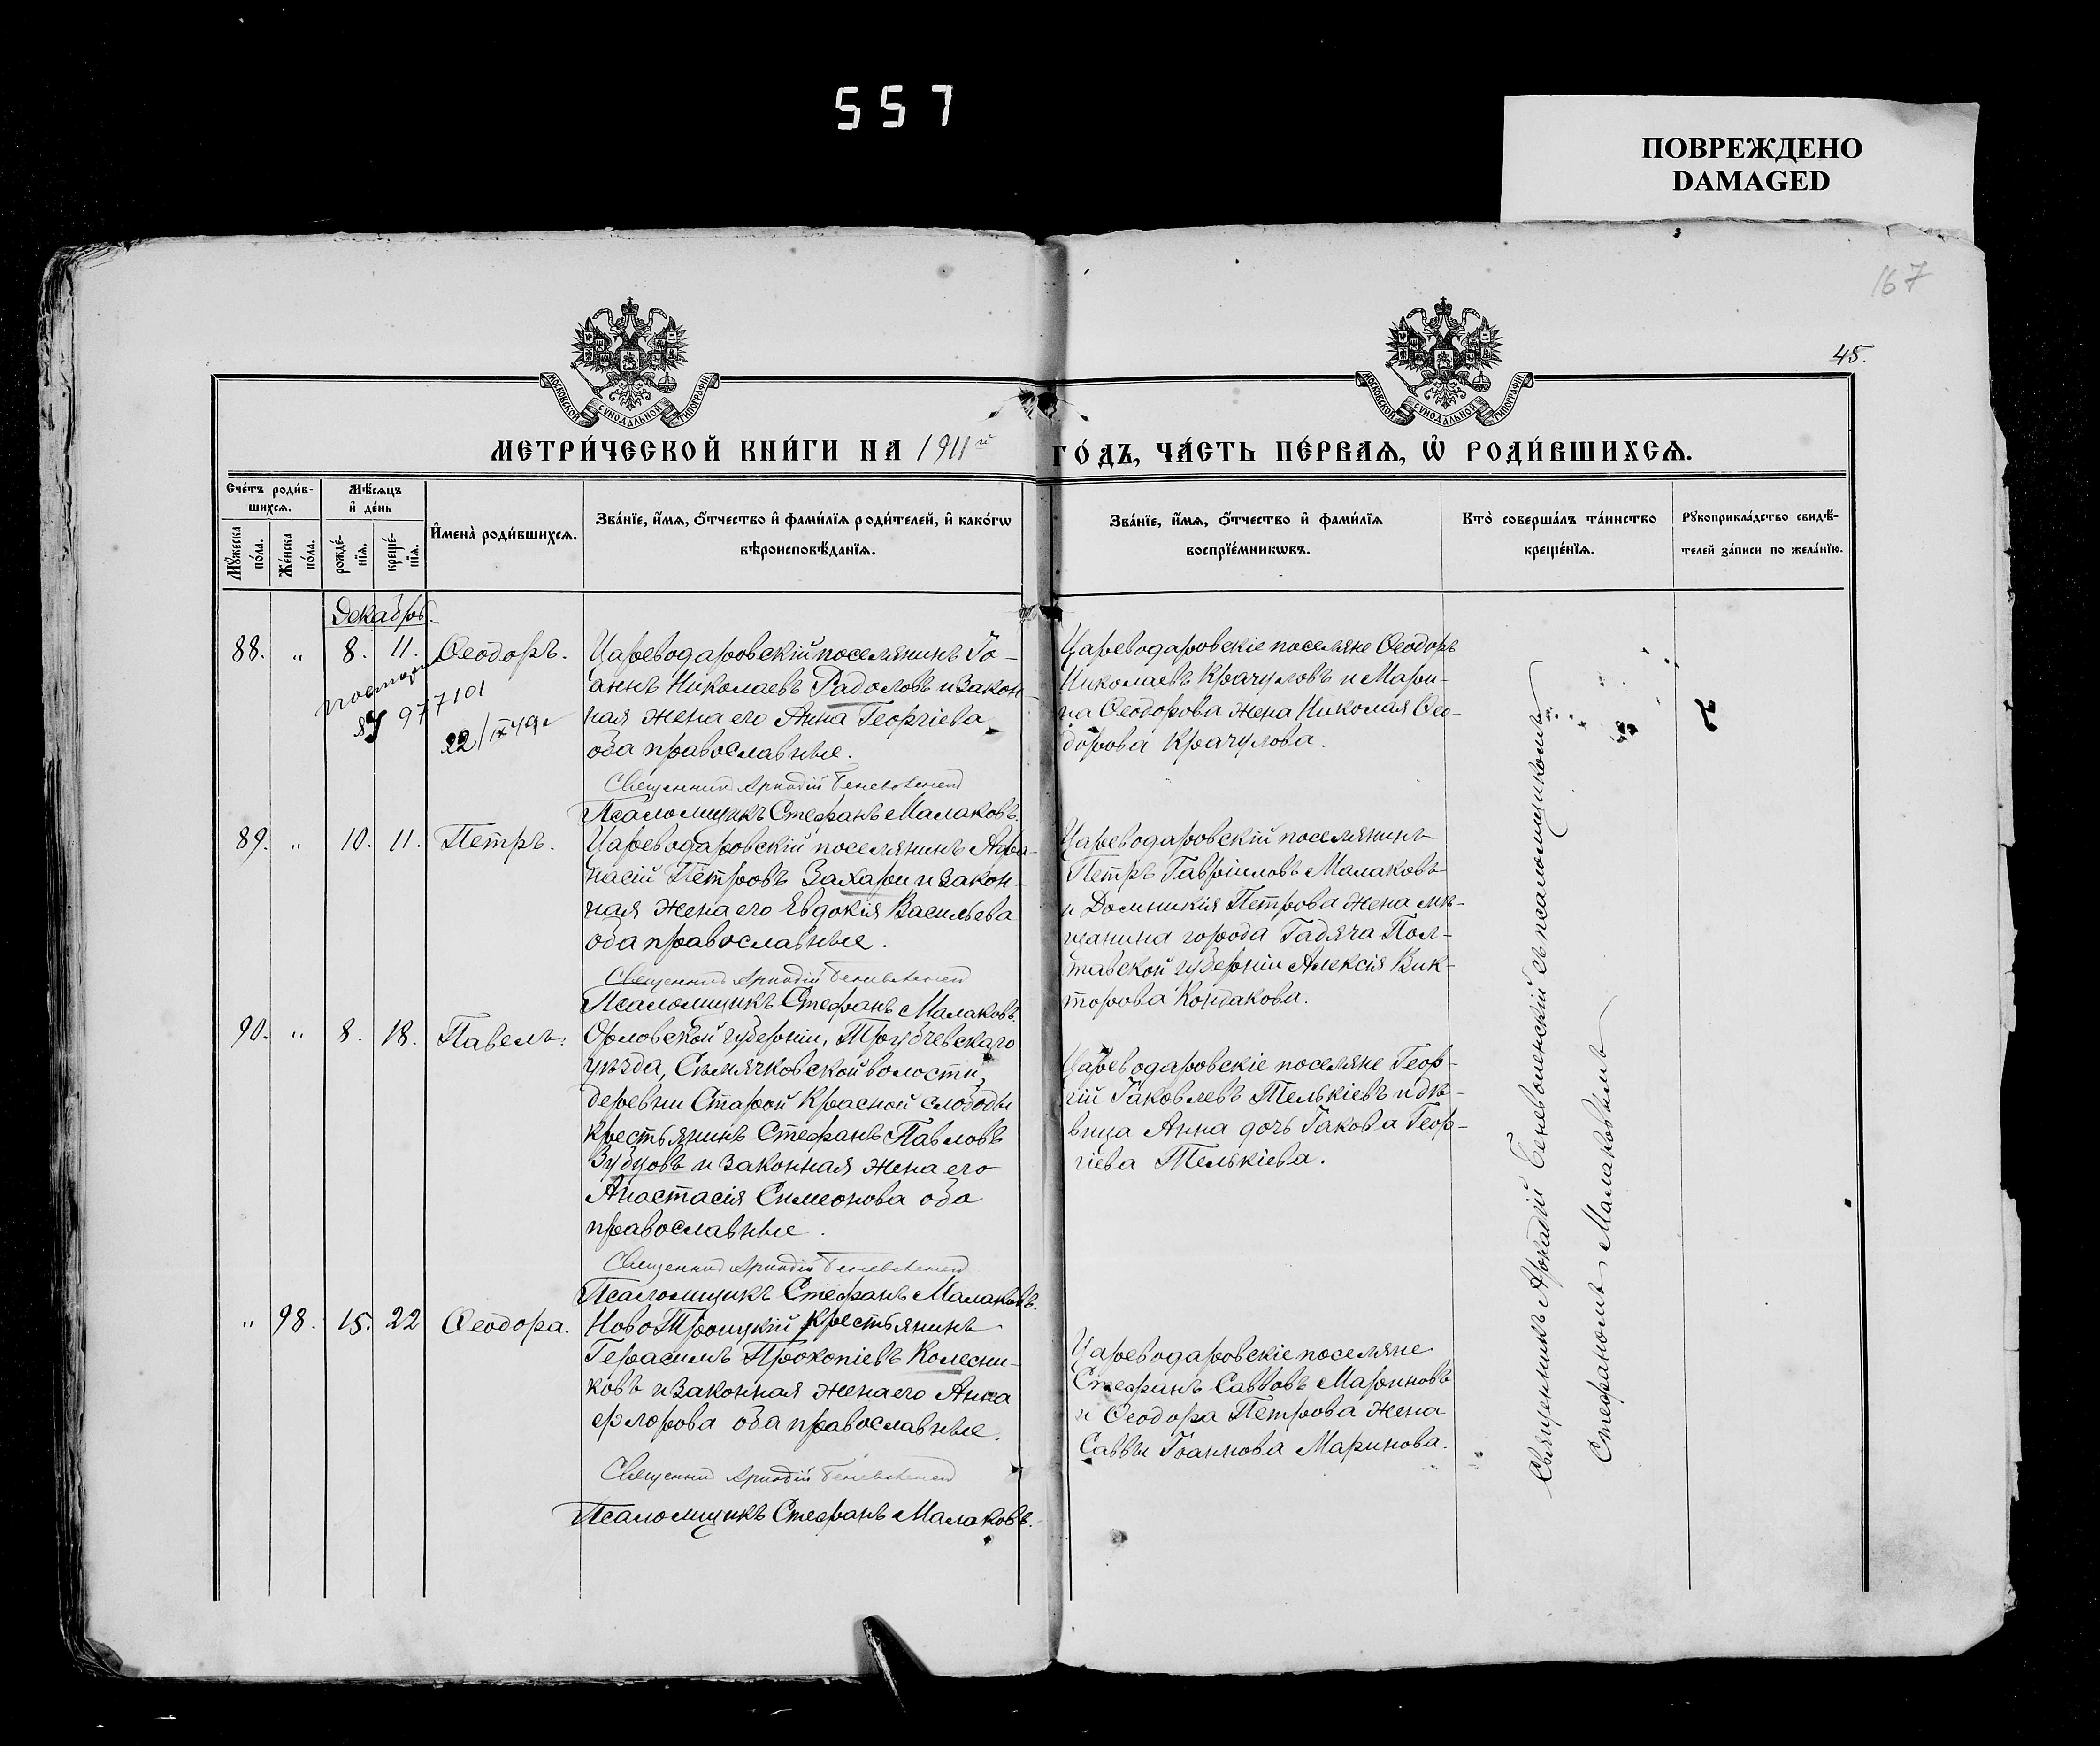 557
ПОВРЕЖДЕНО
DAMAGED
167
45.
МОСКОВСКОЙ СѴНОДАЛЬНОЙ ТИПОГРАФІИ
МОСКОВСКОЙ СѴНОДАЛЬНОЙ ТИПОГРАФІИ
МЕТРИ́ЧЕСКОЙ КНИ́ГИ НА 1911й ГО́ДЪ, ЧА́СТЬ ПЕ́РВАѦ, Ѡ҆ РОДИ́ВШИХСѦ.
Сче́тъ роди́в-
шихсѧ.
Мꙋ́жеска
по́ла.
Же́нска
по́ла.
Мѣ́сѧцъ
и҆ де́нь
рожде́-
нїѧ.
креще́-
нїѧ.
И҆мена̀ роди́вшихсѧ.
Зва́нїе, и҆́мѧ, ѻ҆́тчество и҆ фами́лїѧ роди́телей, и҆ како́гѡ
вѣроисповѣ́данїѧ.
Зва́нїе, и҆́мѧ, ѻ҆́тчество и҆ фами́лїѧ
воспрїе́мникѡвъ.
Кто̀ соверша́лъ та́инство
креще́нїѧ.
Рꙋкоприкла́дство свидѣ́-
телей за́писи по жела́нїю.
Декабрь.
88. „ 8. 11. Ѳеодоръ.
повторно
977101
22/IX 49г
Цареводаровскій поселянинъ Іо-
аннъ Николаевъ Радоловъ и закон-
ная жена его Анна Георгіева
оба православные.
Священникъ Аркадій Беневоленскій
Псаломщикъ Стефанъ Малаковъ.
Цареводаровскіе поселяне Ѳеодоръ
Николаевъ Крачуловъ и Мари-
на Ѳеодорова жена Николая Ѳео-
дорова Крачулова.
89. „ 10. 11. Петръ.
Цареводаровскій поселянинъ Аѳа-
насій Петровъ Захари и закон-
ная жена его Евдокія Васильева
оба православные.
Священникъ Аркадій Беневоленскій
Псаломщикъ Стефанъ Малаковъ.
Цареводаровскій поселянинъ
Петръ Гавріиловъ Малаковъ
и Домникія Петрова жена мѣ-
щанина города Гадяча Пол-
тавской губерніи Алексія Вик-
торова Кондакова.
90. „ 8. 18. Павелъ.
Орловской губерніи, Трубчевскаго
уѣзда, Сѣмячковской волости,
деревни Старой Красной слободы
крестьянинъ Стефанъ Павловъ
Зубцовъ и законная жена его
Анастасія Симеонова оба
православные.
Священникъ Аркадій Беневоленскій
Псаломщикъ Стефанъ Малаковъ.
Цареводаровскіе поселяне Геор-
гій Іаковлевъ Телькіевъ и дѣ-
вица Анна дочь Іакова Геор-
гіева Телькіева.
„ 98. 15. 22 Ѳеодора.
Ново Троицкій крестьянинъ
Герасимъ Прокопіевъ Колесни-
ковъ и законная жена его Анна
Флорова оба православные.
Священникъ Аркадій Беневоленскій
Псаломщикъ Стефанъ Малаковъ.
Цареводаровскіе поселяне
Стефанъ Саввовъ Мариновъ
и Ѳеодора Петрова жена
Саввы Іоаннова Маринова.
Священникъ Аркадій Беневоленскій съ псаломщикомъ
Стефаномъ Малаковымъ